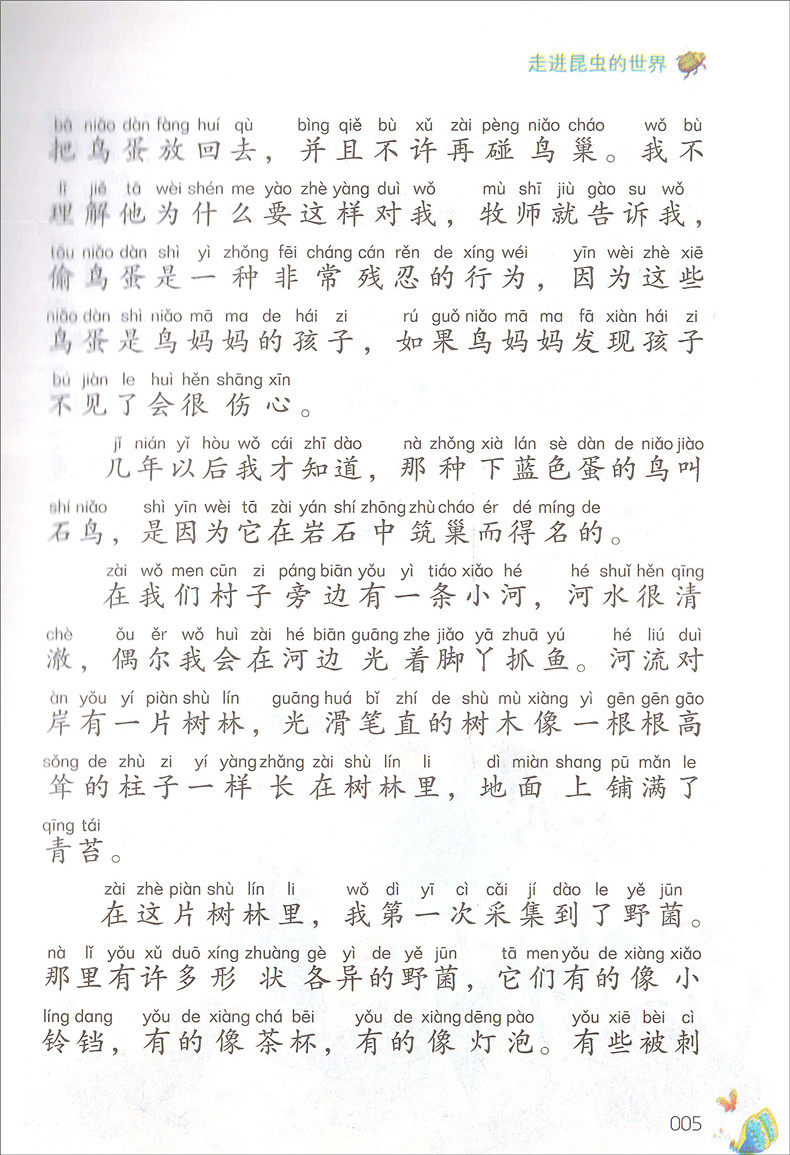 走进昆虫的世界
bǎ niǎo dàn fàng huí qù bìng qiě bù xǔ zài pèng niǎo cháo wǒ bù
把鸟蛋放回去，并且不许再碰鸟巢。我不
lǐ jiě tā wèi shén me yào zhè yàng duì wǒ mù shī jiù gào su wǒ
理解他为什么要这样对我，牧师就告诉我，
tōu niǎo dàn shì yì zhǒng fēi cháng cán rěn de xíng wéi yīn wèi zhè xiē
偷鸟蛋是一种非常残忍的行为，因为这些
niǎo dàn shì niǎo mā ma de hái zi rú guǒ niǎo mā ma fā xiàn hái zi
鸟蛋是鸟妈妈的孩子，如果鸟妈妈发现孩子
bú jiàn le huì hěn shāng xīn
不见了会很伤心。
jǐ nián yǐ hòu wǒ cái zhī dào nà zhǒng xià lán sè dàn de niǎo jiào
几年以后我才知道，那种下蓝色蛋的鸟叫
shí niǎo shì yīn wèi tā zài yán shí zhōng zhù cháo ér dé míng de
石鸟，是因为它在岩石中筑巢而得名的。
zài wǒ men cūn zi páng biān yǒu yì tiáo xiǎo hé hé shuǐ hěn qīng
在我们村子旁边有一条小河，河水很清
chè ǒu ěr wǒ huì zài hé biān guāng zhe jiǎo yā zhuā yú hé liú duì
澈，偶尔我会在河边光着脚丫抓鱼。河流对
àn yǒu yí piàn shù lín guāng huá bǐ zhí de shù mù xiàng yì gēn gēn gāo
岸有一片树林，光滑笔直的树木像一根根高
sǒng de zhù zi yí yàng zhǎng zài shù lín li dì miàn shang pū mǎn le
耸的柱子一样长在树林里，地面上铺满了
qīng tái
青苔。
zài zhè piàn shù lín li wǒ dì yī cì cǎi jí dào le yě jūn
在这片树林里，我第一次采集到了野菌。
nà lǐ yǒu xǔ duō xíng zhuàng gè yì de yě jūn tā men yǒu de xiàng xiǎo
那里有许多形状各异的野菌，它们有的像小
líng dang yǒu de xiàng chá bēi yǒu de xiàng dēng pào yǒu xiē bèi cì
铃铛，有的像茶杯，有的像灯泡。有些被刺
005